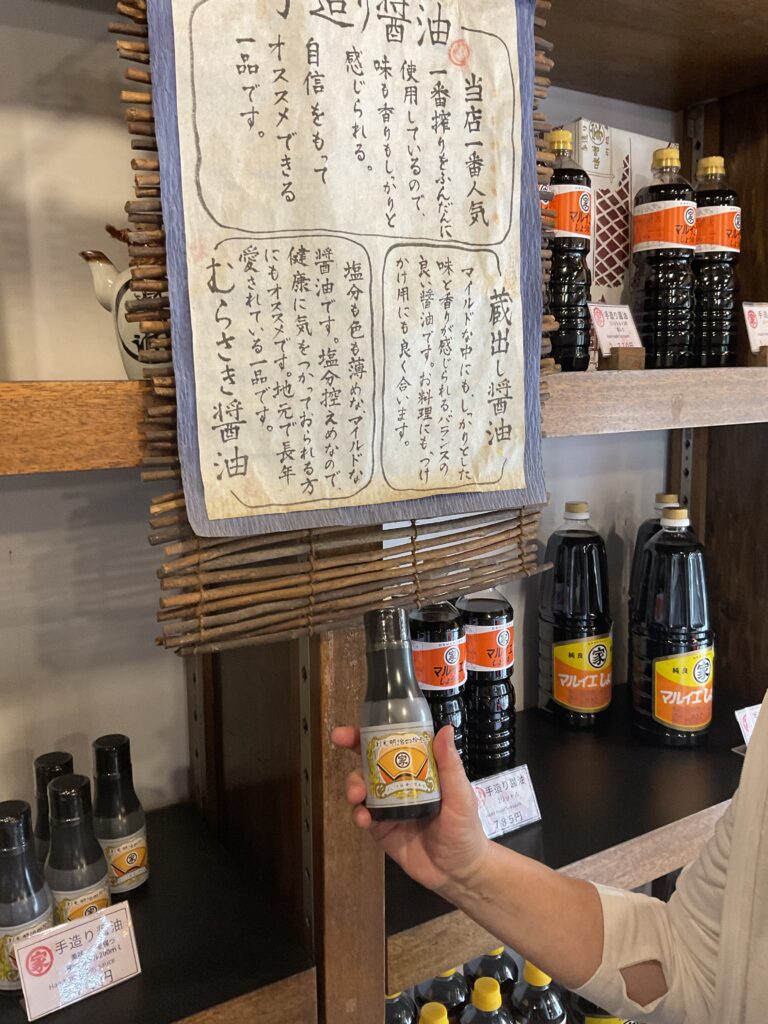 手造り醤油
当店一番人気
一番搾りをふんだんに
使用しているので
味も香りもしっかりと
感じられる。
自信をもって
オススメできる
一品です。
蔵出し醤油
マイルドな中にも、しっかりとした
味と香りが感じられるバランスの
良い醤油です。お料理にも、つけ
かけ用にも良く合います。
塩分も色も薄めな、マイルドな
醤油です。塩分控えめなので
健康に気をつかっておられる方
にもオススメです。地元で長年
愛されている一品です。
むらさき醤油
家
マルイエ
しょうゆ
家
マルイエ
家
手造り醤油
家
マルイエ
しょうゆ
家
純良
家
マルイエし
純良
家
マルイエし
家
手造り醤油
785円
家
家
手造り醤油
200mL
円